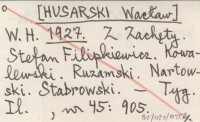 [HUSARSKI Wacław]
W. H. 1927. Z Zachęty.
Stefan Filipkiewicz. Kowa-
lewski. Ruzamski. Nartow-
ski. Stabrowski. – Tyg.
Il. , nr 45: 905.